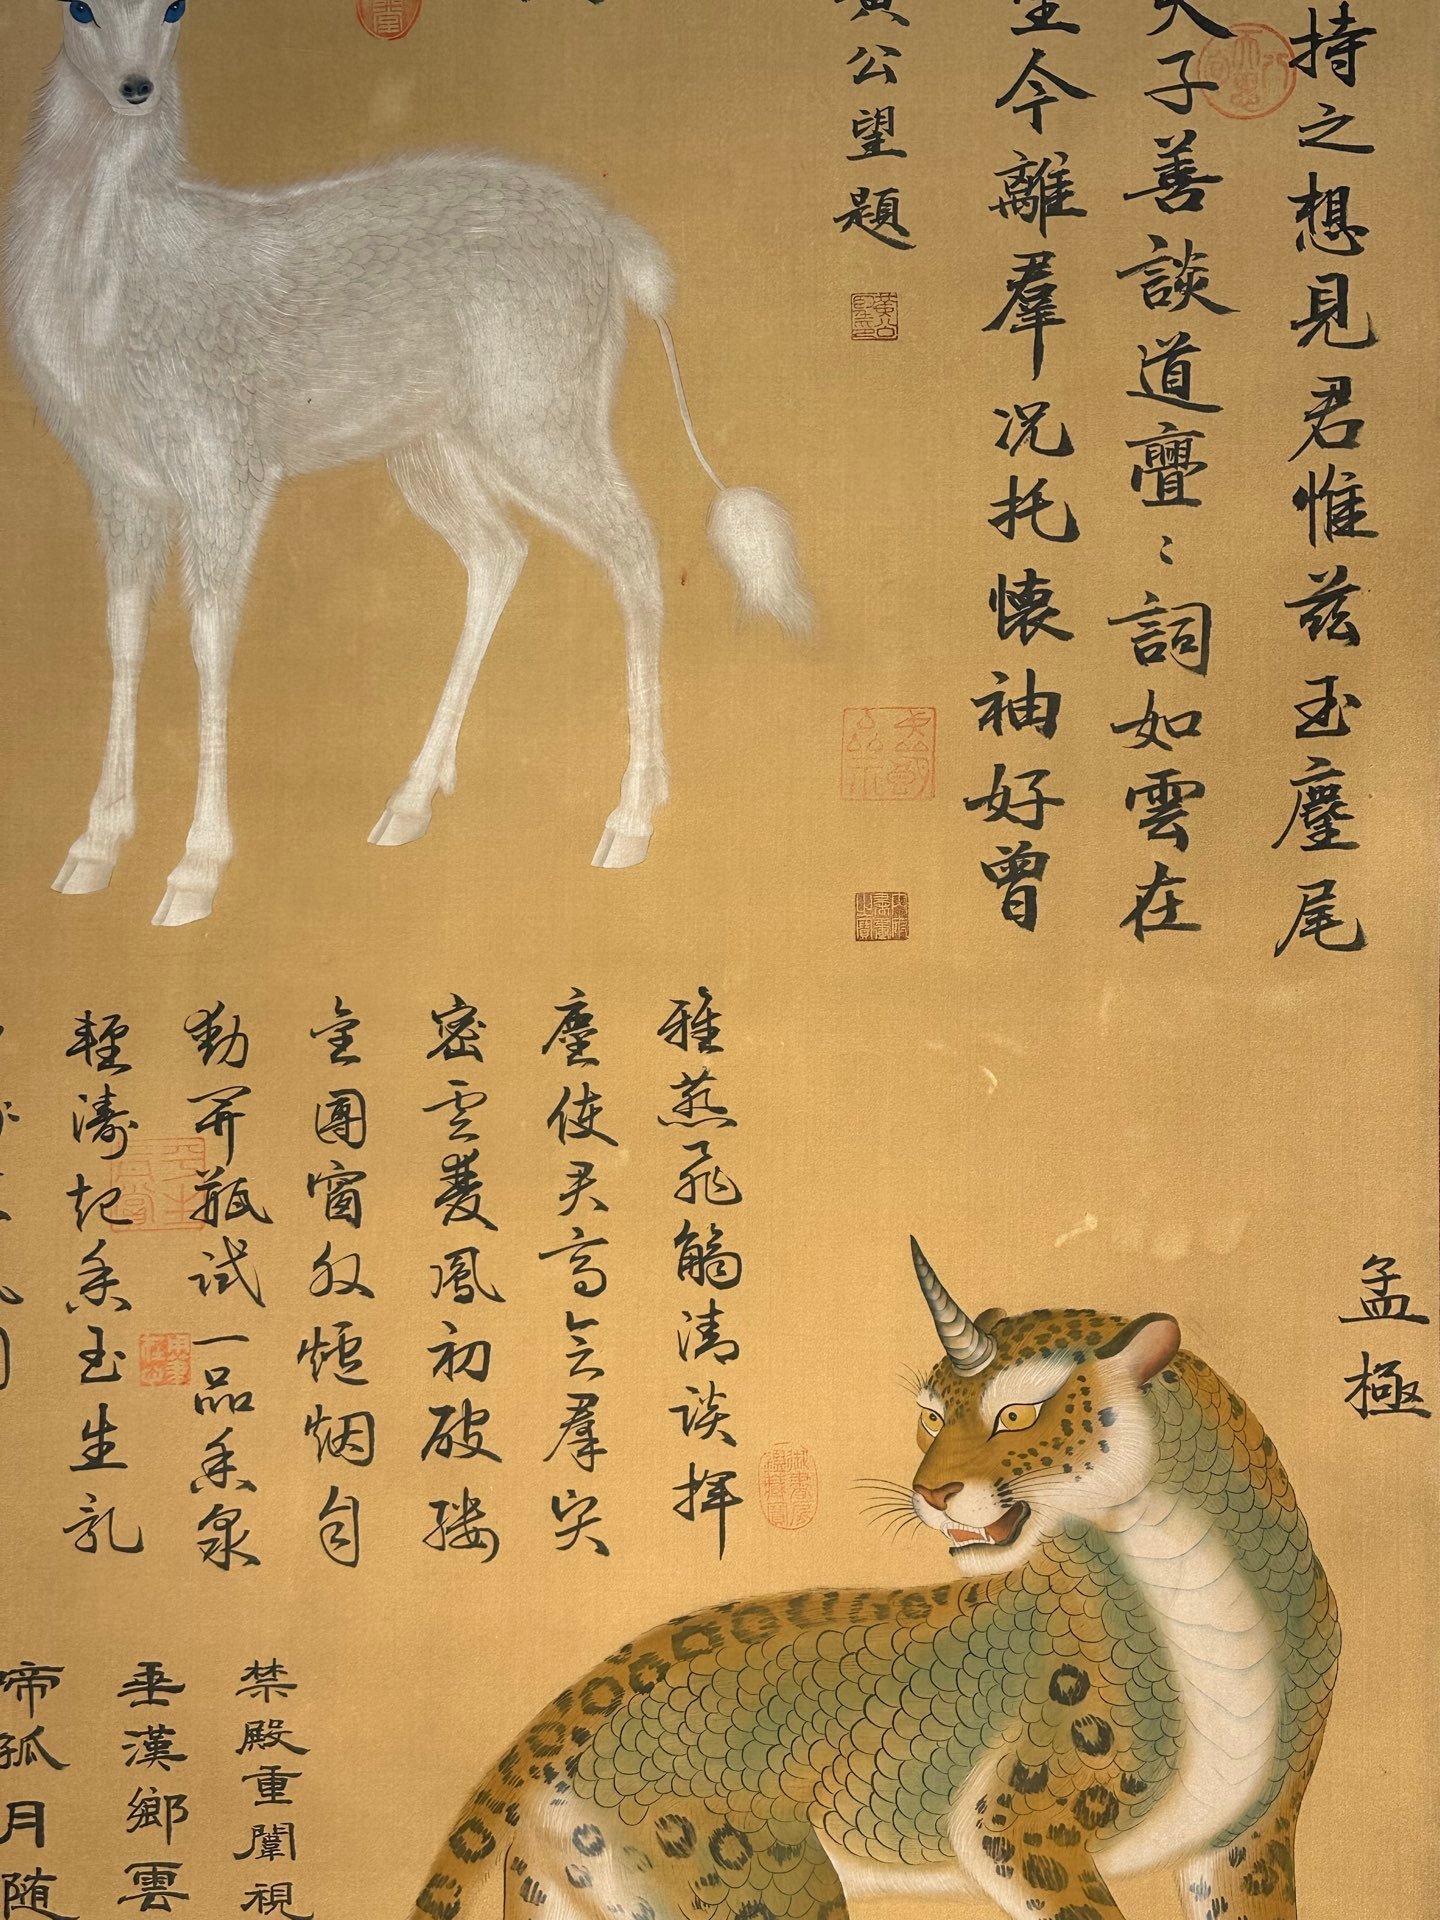 持之想見君惟茲玉麈尾
子善談道亹〻詞如雲在
今離羣況托懷袖好曾
公望題
雅燕飛觴清談揮
麈使君高会羣英
密云雙鳳初破縷
金團窗外爐烟自
動開瓶試一品香泉
輕濤起香玉生乳
孟極
禁殿重闈視
垂漢鄉雲
帝孤月随